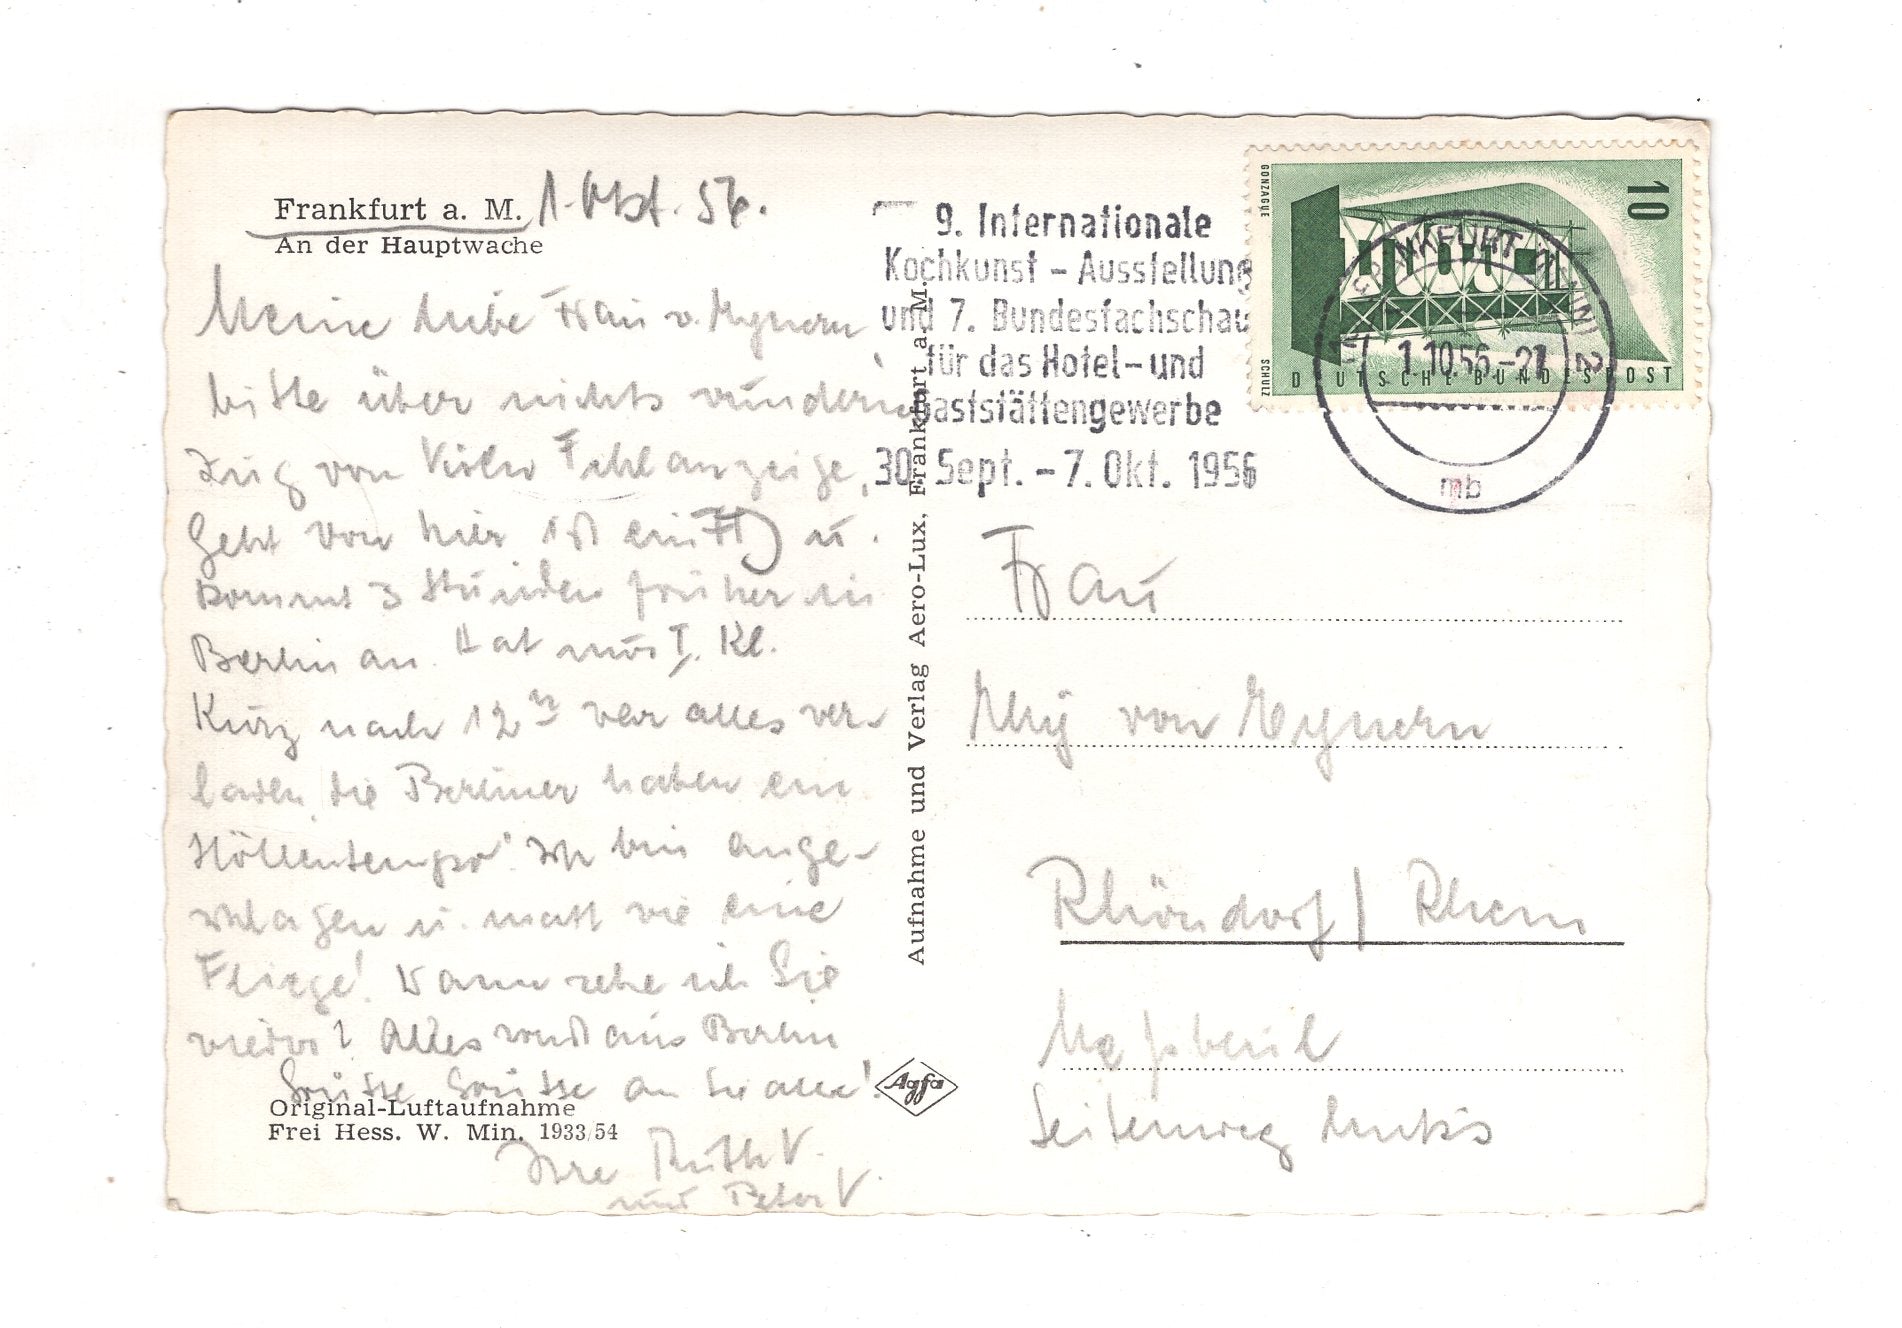 Frankfurt a. M. 1. Okt. 56.
An der Hauptwache
Meine liebe Frau v. Eynern
bitte über nichts wundern
Zug von Köln Fehlanzeige,
Geht von hier ist ein FD u.
kommt 3 Stunden früher in
Berlin an. Hat nur I. Kl.
Kurz nach 12 war alles ver-
laden, die Berliner haben ein
Höllentempo! Ich bin ange-
schlagen u. matt wie eine
Fliege! Wann sehe ich Sie
wieder? Alles weitere aus Berlin
Grüsse Grüsse an Sie alle!
Ihre Ruth V.
und Peter V.
Original-Luftaufnahme
Frei Hess. W. Min. 1933/54
Aufnahme und Verlag Aero-Lux, Frankfurt a. M.
Agfa
9. Internationale
Kochkunst - Ausstellung
und 7. Bundesfachschau
für das Hotel- und
Gaststättengewerbe
30. Sept. - 7. Okt. 1956
GONZAGUE
SCHULZ
10
EUROPA
DEUTSCHE BUNDESPOST
FRANKFURT (MAIN) 2
1.10.56.-21
mb
Frau
von Eynern
Rhöndorf / Rhein
Seitenweg links